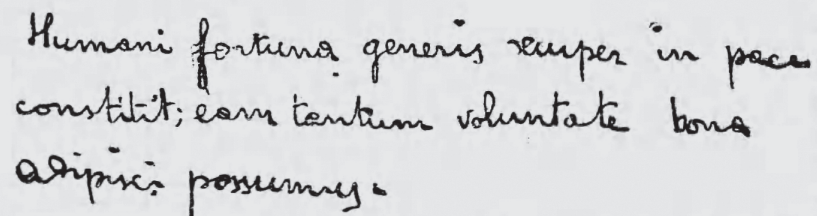 Humani fortuna generis semper in pace
constitit; eam tantum voluntate bona
adipisci possumus.